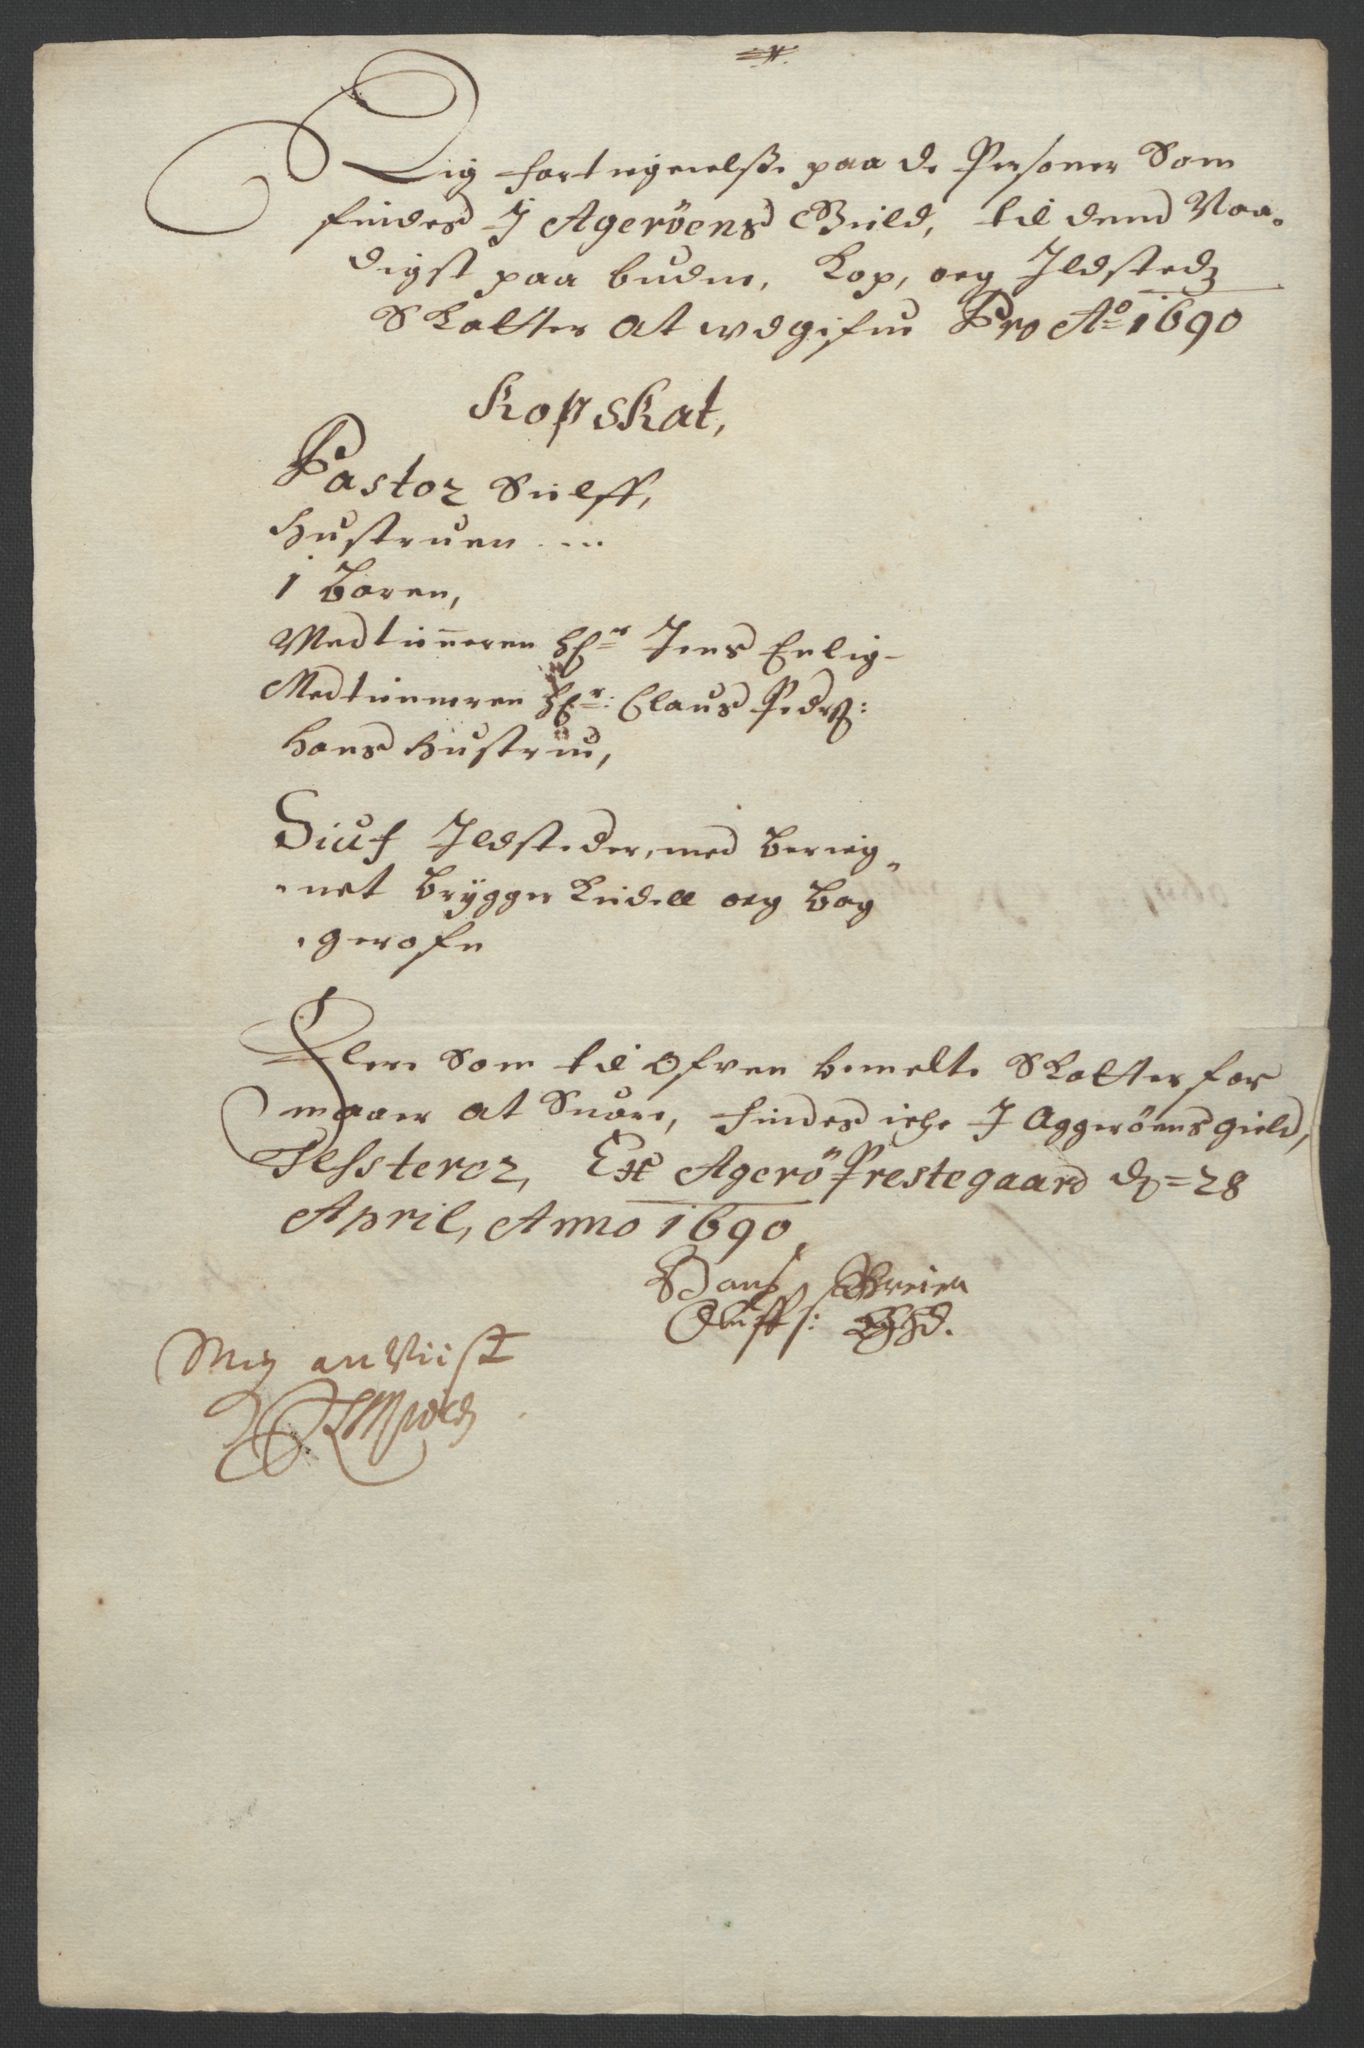 Rigtig fortegnelse paa de Personer Som
findes I Agerøens Gield, til dend Naa-
digst paa budne, Kop, oeg Ildsteds
Skatter at wdgifue Pro Ao 1690
Kopskat,
Pastor Sielff,
Hustruen ...
1 Baren,
Medtienneren Hr Jens Enlig
Medtienneren Hr: Claus Peders:
hans Hustrue,
Siuf Ildsteder, med bereig-
net brygger Kiedell oeg bag
gerofn
Flere Som til Ofuen bemelte Skatter for
maaer at Suare, findes iche I Aggerøens gield,
Testerer, Ex Agerø Prestegaard d= 28
April, Anno 1690
Hans
Oluffs:
Mig anViist